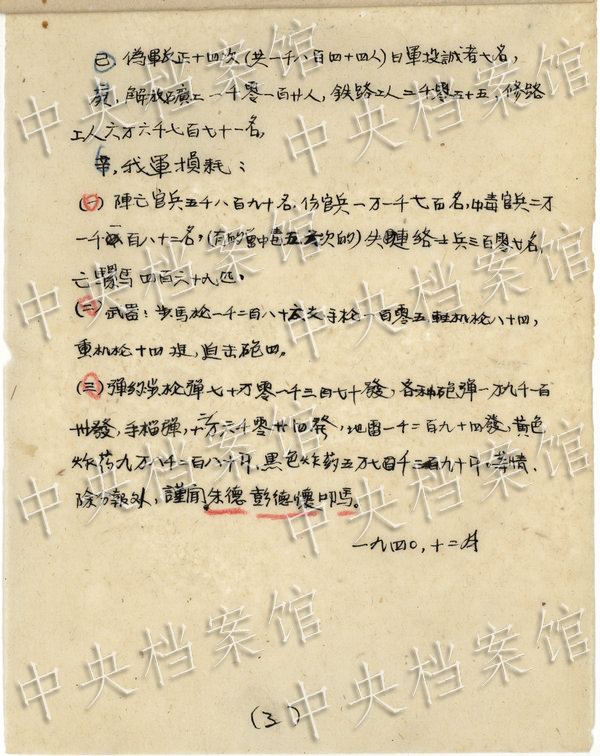 已、偽軍反正十四次(共一千八百四十四人)日軍投誠者七名,
庚,解放礦工一千零一百廿人,鉄路工人二千零三十五,修路
工人六万六千七百七十一名,
辛,我軍損耗:
(一)陣亡官兵五千八百九十名,伤官兵一万一千七百名,中毒官兵二万
一千百八十二名,(有的中毒五六次的)失聯絡士兵三百零七名,
亡騾馬四百六十九匹。
(二)武器:步馬枪一千二百八十支手枪一百零五輕机枪八十四,
重机枪十四挺,迫击砲四。
(三)彈约步枪彈七十万零一千三百七十發,各种砲彈一万九千一百
卅發,手榴彈,十二万六千零卅四發,地雷一千二百九十四發,黄色
炸药九万八千二百八十斤,黑色炸药五万七百千三百九十斤,等情,
除分報外,謹聞朱德 彭德懷叩馬。
一九四〇,十二月
(3)
中央档案馆
中央档案馆
中央档案馆
中央档案馆
中央档案馆
中央档案馆
中央档案馆
中央档案馆